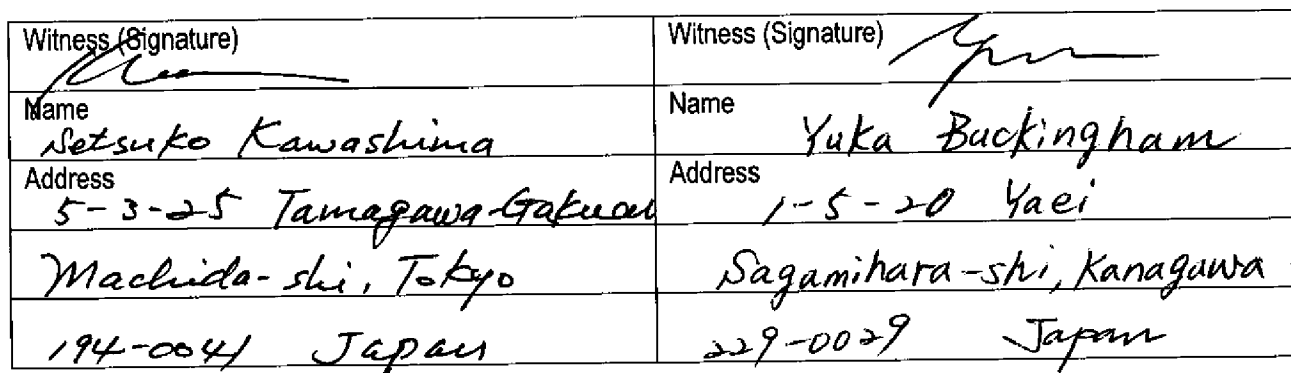 Witness (Signature)
Name
Setsuko Kawashima
Address
5-3-25 Tamagawa-Gakuen
Machida-shi, Tokyo
194-0041 Japan
Witness (Signature)
Name
Yuka Buckingham
Address
1-5-20 Yaei
Sagamihara-shi, Kanagawa
229-0029 Japan